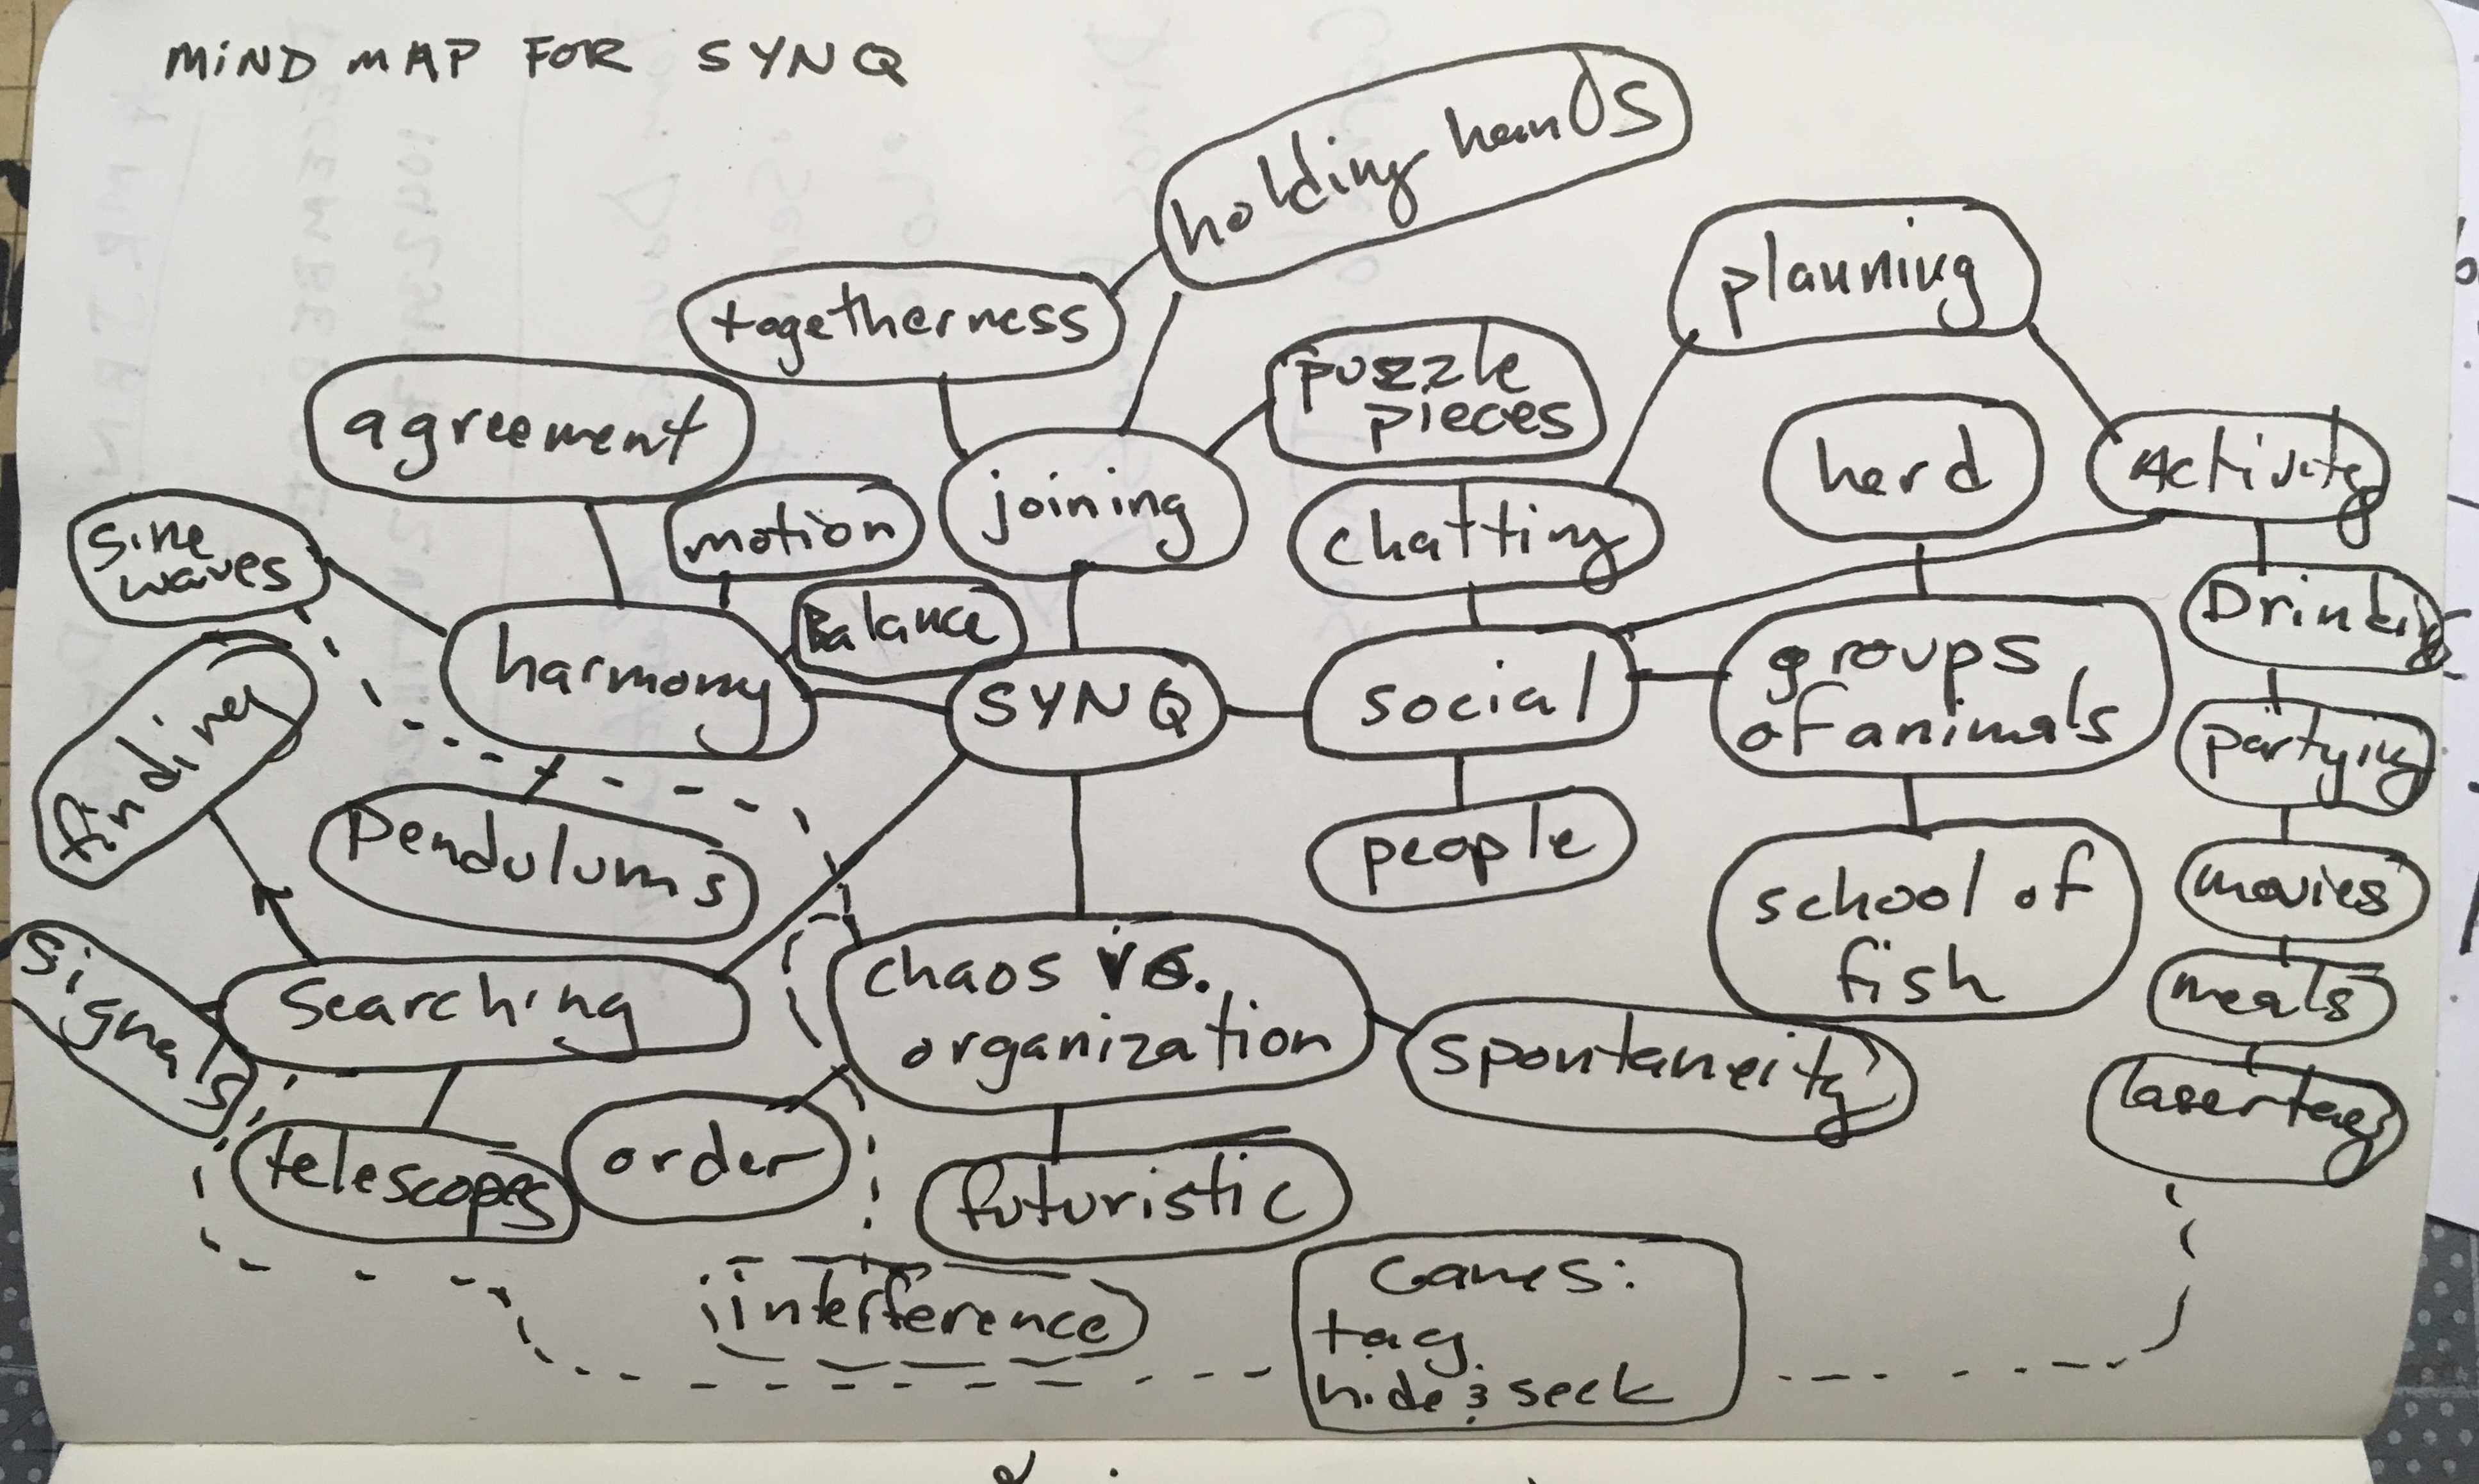 MIND MAP FOR SYNQ
holding hands
togetherness
planning
agreement
puzzle
pieces
herd
Activity
motion
joining
chatting
sine
waves
Balance
Drinking
harmony
SYNQ
social
groups
of animals
finding
partying
Pendulums
people
school of
fish
movies
signals
searching
chaos vs.
organization
spontaneity
meals
lasertag
telescopes
order
futuristic
interference
Games:
tag
hide & seek